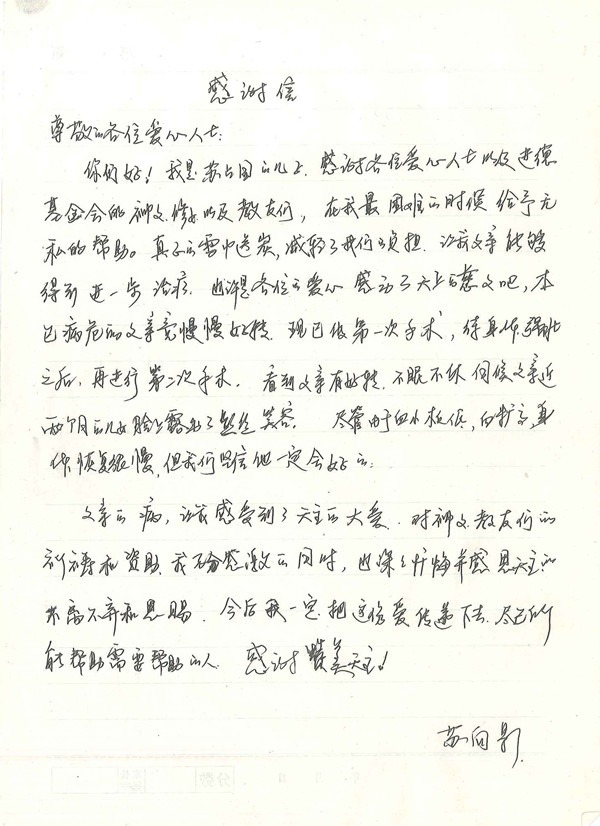 感谢信
尊敬的各位爱心人士:
你们好！我是苏占国的儿子.感谢各位爱心人士以及进德
基金会的神父修女以及教友们，在我最困难的时候给予无
私的帮助。真正的雪中送炭，减轻了我们的负担.让我父亲能够
得到进一步治疗.也许是各位的爱心感动了天上的慈父吧，本
已病危的父亲竟慢慢好转.现已做第一次手术，待身体强壮
之后，再进行第二次手术.看到父亲有好转.不眠不休伺候父亲近
两个月的儿女脸上露出了丝丝笑容.尽管由于血小板低，身
体恢复缓慢，但我们坚信他一定会好的.
父亲的病，让我感受到了天主的大爱.对神父教友们的
祈祷和资助.我万分感激的同时，也深深忏悔并感恩天主的
不离不弃和恩赐.今后我一定把这份爱传递下去.尽己所
能帮助需要帮助的人.感谢赞美天主！
苏向影